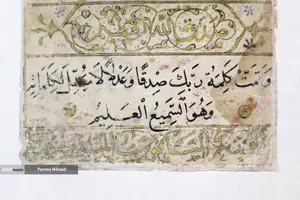 صدق الله العظیم
وَتَمَّتْ كَلِمَةُ رَبِّكَ صِدْقًا وَعَدْلًا لَا مُبَدِّلَ لِكَلِمَاتِهِ
وَهُوَ السَّمِيعُ الْعَلِيمُ
Pantea Nikzad